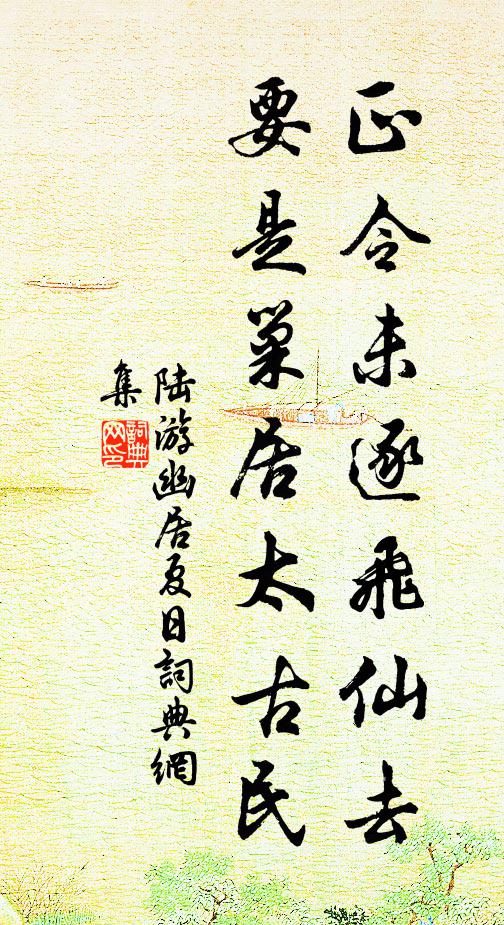 正令未逐飛仙去
要是巢居太古民
陆游幽居夏日詞典網
集
詞典
网印